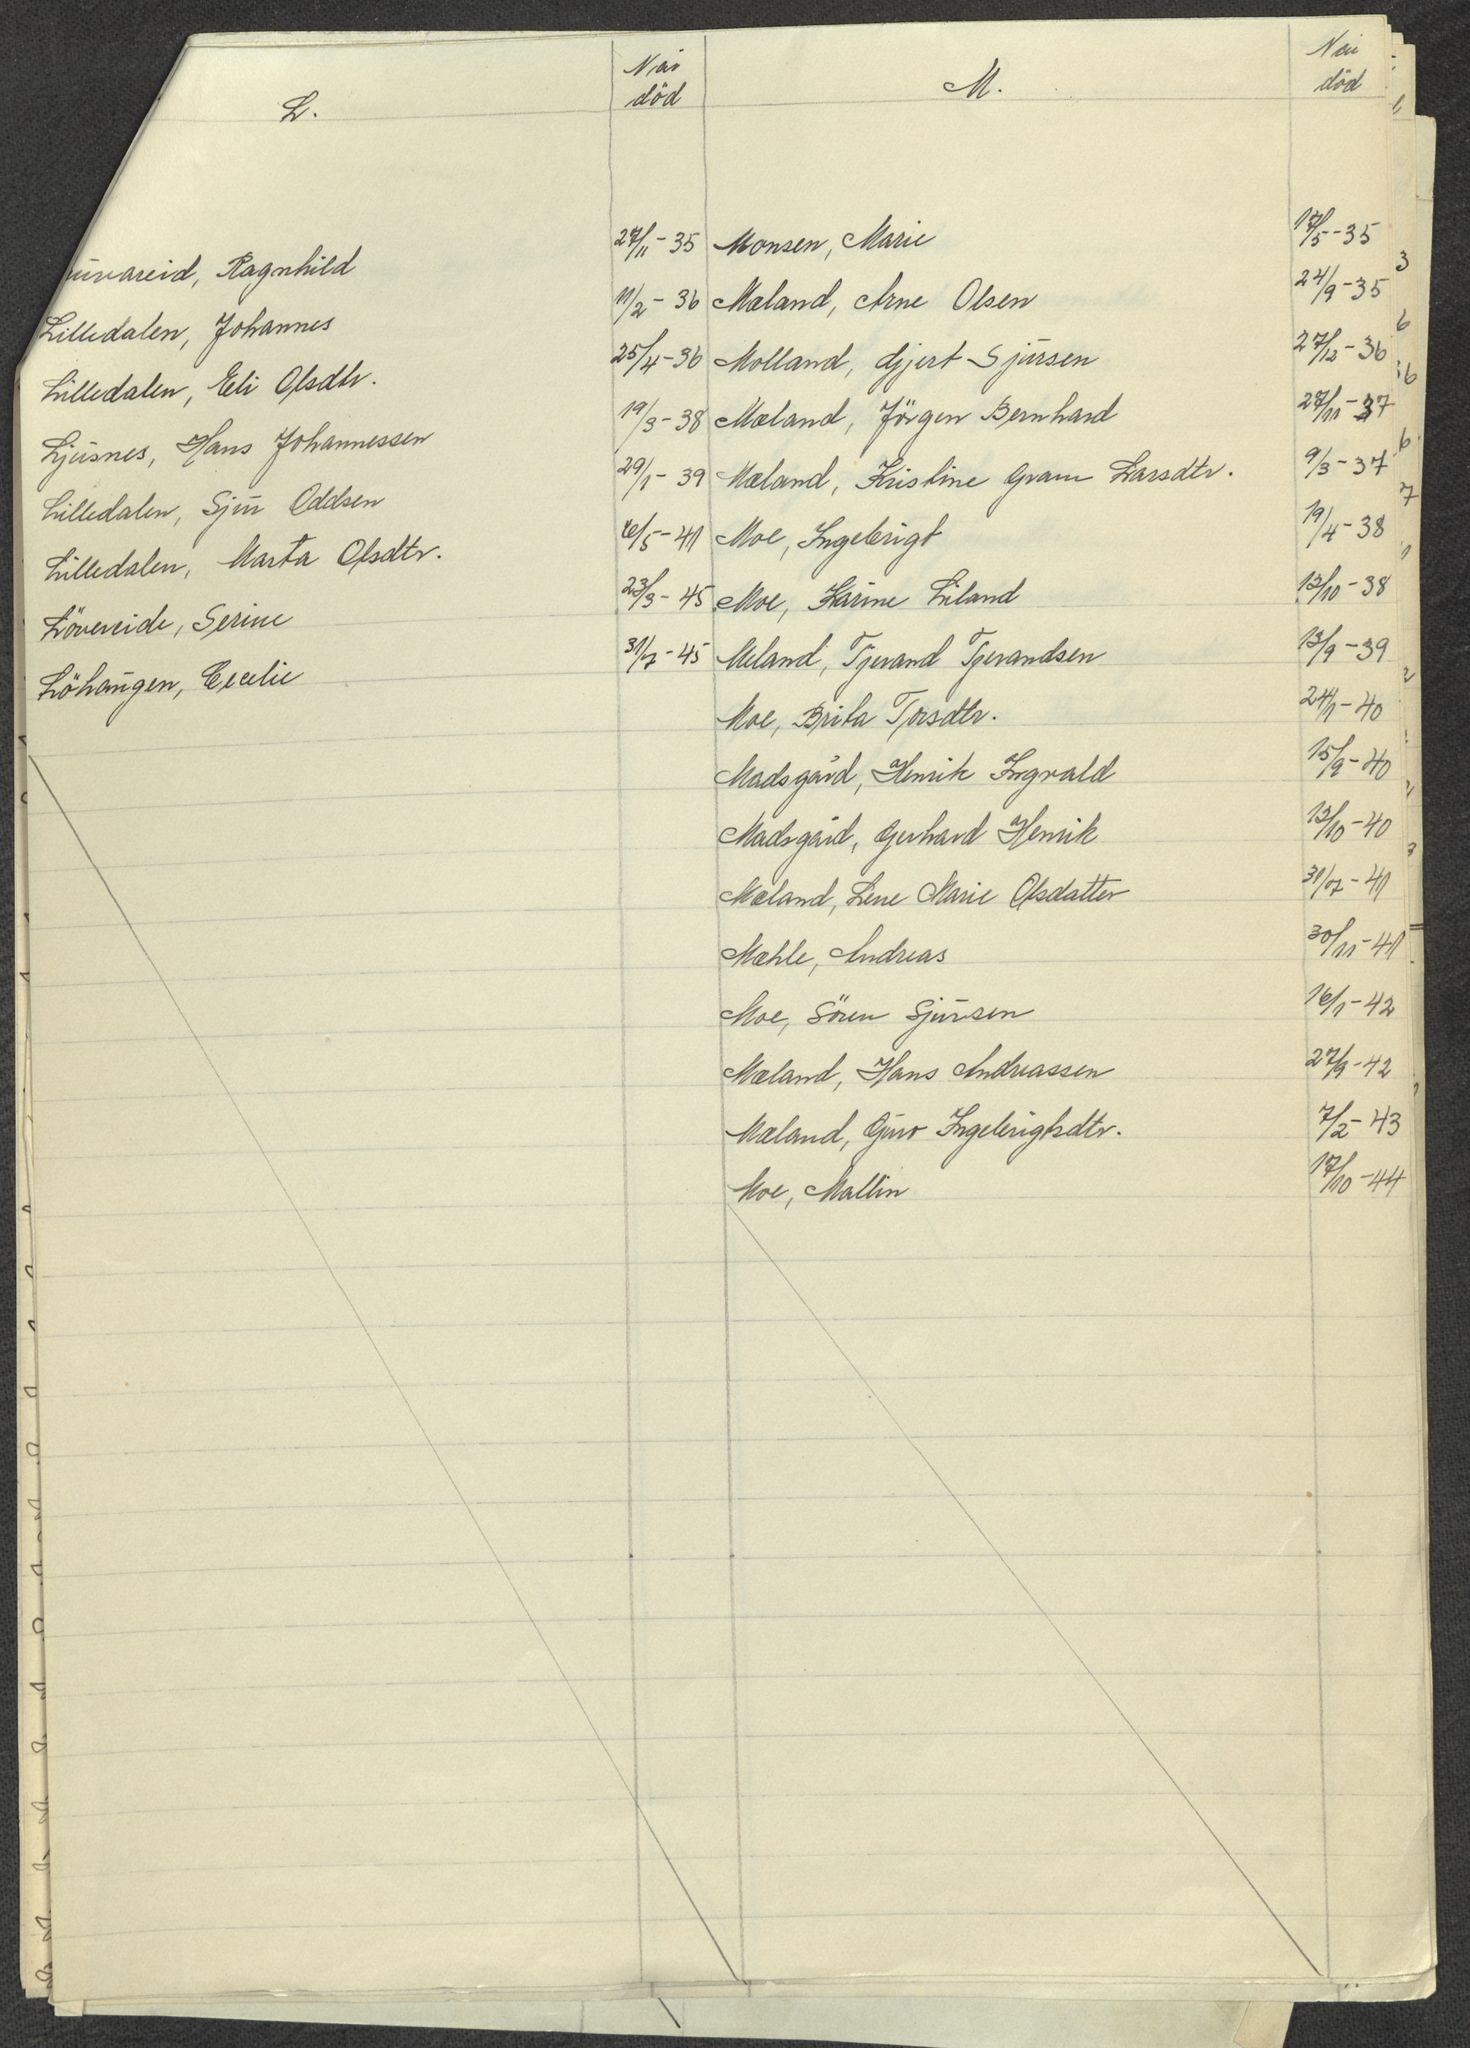 L.
Når
död
uvareid, Ragnhild 27/11-35
Lilledalen, Johannes 11/2-36
Lilledalen, Eli Olsdtr. 25/4-36
Ljusnes, Hans Johannessen 19/3-38
Lilledalen, Sjur Oddsen 29/1-39
Lilledalen, Marta Olsdtr. 6/5-41
Lövereide, Serine 23/3-45
Löhaugen, Cecelie 31/7-45
M.
Når
död
Monsen, Marie 17/5-35
Mæland, Arne Olsen 24/9-35
Molland, Gjert Sjursen 27/12-36
Mæland, Jörgen Bernhard 27/11-37
Mæland, Kristine Gram Larsdtr. 9/3-37
Moe, Ingebrigt 19/4-38
Moe, Karine Liland 12/10-38
Meland, Tjerand Tjerandsen 13/9-39
Moe, Brita Torsdtr. 24/1-40
Madsgård, Henrik Ingvald 15/9-40
Madsgård, Gerhard Henrik 12/10-40
Mæland, Lene Marie Olsdatter 31/07-41
Mæhle, Andreas 30/11-41
Moe, Sören Sjursen 16/1-42
Mæland, Hans Andreassen 27/9-42
Mæland, Guro Ingebrigtsdtr. 7/2-43
Moe, Mallin 17/10-44